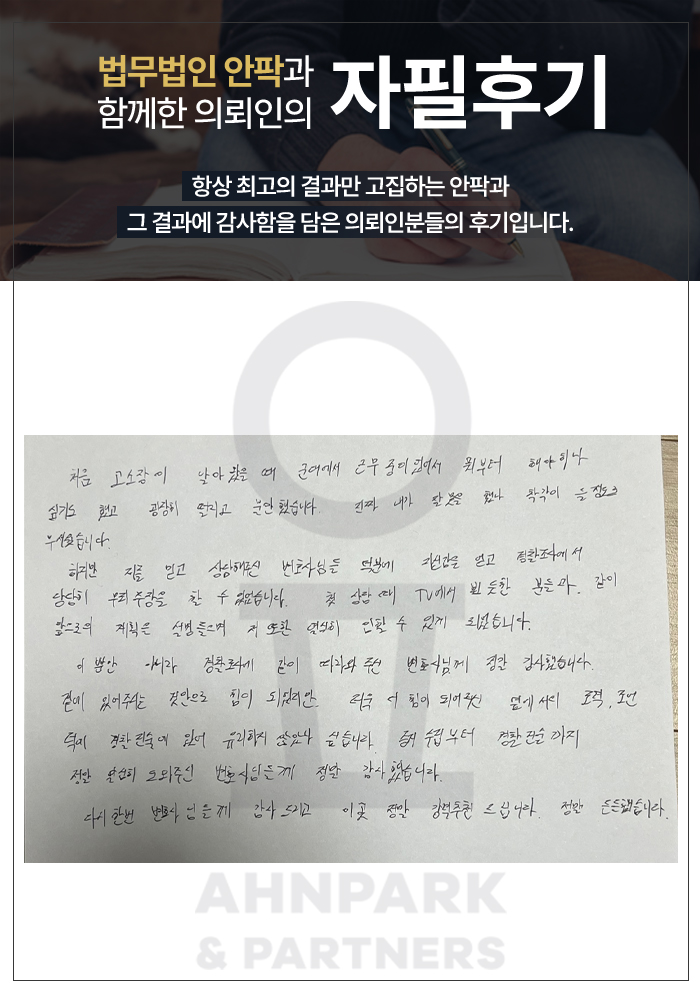 법무법인 안팍과
함께한 의뢰인의
자필후기
항상 최고의 결과만 고집하는 안팍과
그 결과에 감사함을 담은 의뢰인분들의 후기입니다.
처음 고소장이 날아왔을 때 군대에서 근무 중이었어서 뭐부터 해야하나
싶기도 했고 굉장히 떨리고 불안했습니다. 진짜 내가 잘못을 했나 착각이 들 정도로
무서웠습니다.
하지만 저를 믿고 상담해주신 변호사님들 덕분에 자신감을 얻고 경찰조사에서
당당히 우리 주장을 할 수 있었습니다. 첫 상담 때 TV에서 뵌 듯한 분들과 같이
앞으로의 계획은 설명들으며 저 또한 열심히 임할 수 있게 되었습니다.
이 뿐만 아니라 경찰조사에 같이 따라와 주신 변호사님께 정말 감사했습니다.
곁에 있어주시는 것만으로 힘이 되었지만 더욱 더 힘이 되어주신 옆에서의 조력, 조언
덕에 경찰 진술에 있어 유리하지 않았나 싶습니다. 수립부터 경찰 진술까지
정말 열심히 도와주신 변호사님들께 정말 감사했습니다.
다시 한번 변호사님들께 감사드리고 이곳 정말 강력추천 드립니다. 정말 든든했습니다.
AHNPARK
& PARTNERS